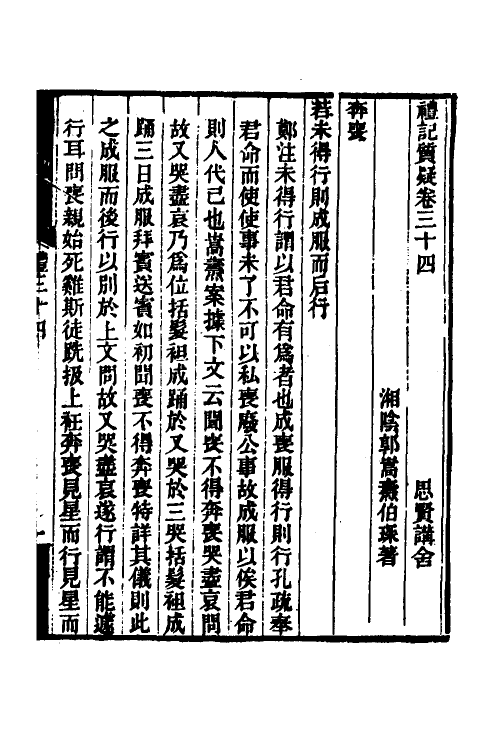 禮記質疑卷三十四
思賢講舍
湘陰郭嵩燾伯琛著
奔喪
若未得行則成服而后行
鄭注未得行謂以君命有爲者也成喪服得行則行孔疏奉
君命而使使事未了不可以私喪廢公事故成服以俟君命
則人代己也嵩燾案據下文云聞喪不得奔喪哭盡哀問
故又哭盡哀乃爲位括髮袒成踊於又哭於三哭括髮袒成
踊三日成服拜賓送賓如初聞喪不得奔喪特詳其儀則此
之成服而後行以別於上文問故又哭盡哀遂行謂不能遽
行耳問喪親始死雞斯徒跣扱上衽奔喪見星而行見星而
禮三十四